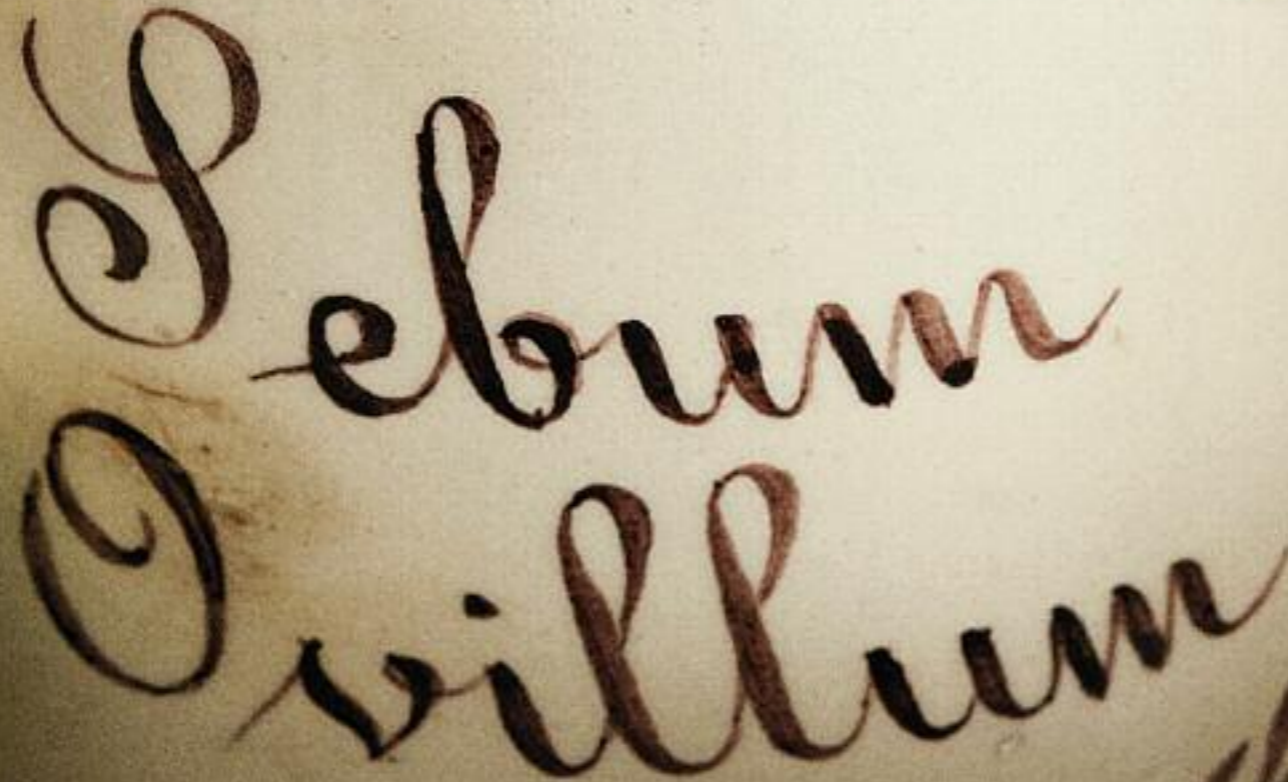 Sebum
Ovillum